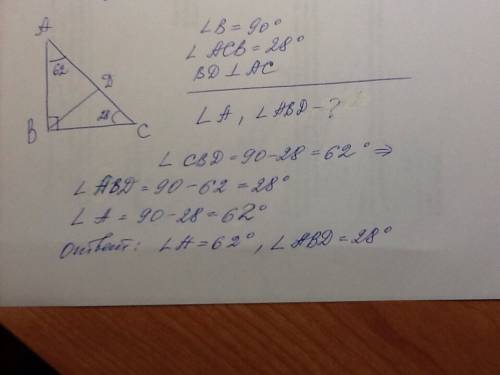 A
62
D
28
B
C
∠B = 90°
∠ACB = 28°
BD ⊥ AC
∠A, ∠ABD - ?
∠CBD = 90 - 28 = 62° ⇒
∠ABD = 90 - 62 = 28°
∠A = 90 - 28 = 62°
Ответ: ∠A = 62°, ∠ABD = 28°